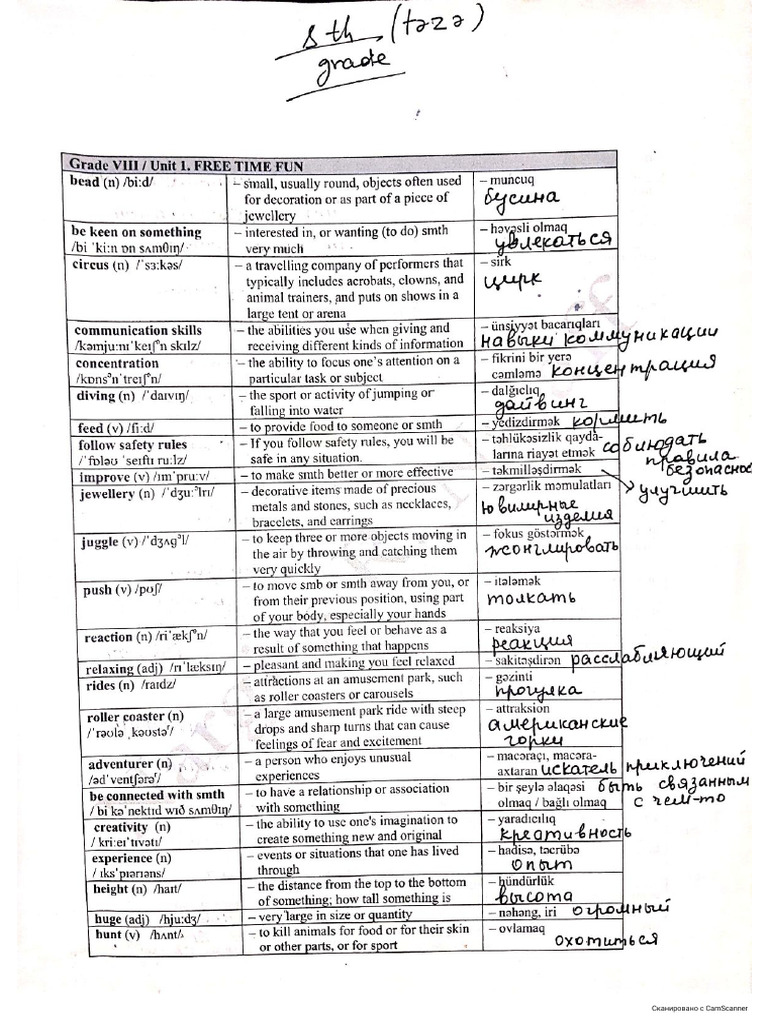 8th (təzə)
grade
Grade VIII / Unit 1. FREE TIME FUN
bead (n) /biːd/ – small, usually round, objects often used – muncuq
for decoration or as part of a piece of бусина
jewellery
be keen on something – interested in, or wanting (to do) smth – həvəsli olmaq
/bi ˈkiːn ɒn sʌmθɪŋ/ very much увлекаться
circus (n) /ˈsɜːkəs/ – a travelling company of performers that – sirk
typically includes acrobats, clowns, and цирк
animal trainers, and puts on shows in a
large tent or arena
communication skills – the abilities you use when giving and – ünsiyyət bacarıqları
/kəmjuːnɪˈkeɪʃᵊn skɪlz/ receiving different kinds of information навыки коммуникации
concentration – the ability to focus one's attention on a – fikrini bir yerə
/kɒnsᵊnˈtreɪʃᵊn/ particular task or subject cəmləmə концентрация
diving (n) /ˈdaɪvɪŋ/ – the sport or activity of jumping or – dalğıclıq
falling into water дайвинг
feed (v) /fiːd/ – to provide food to someone or smth – yedizdirmək кормить
follow safety rules – If you follow safety rules, you will be – təhlükəsizlik qayda-
/ˈfɒləʊ ˈseɪftɪ ruːlz/ safe in any situation. larına riayət etmək соблюдать
правила
improve (v) /ɪmˈpruːv/ – to make smth better or more effective – təkmilləşdirmək безопаснос
jewellery (n) /ˈdʒuːᵊlrɪ/ – decorative items made of precious – zərgərlik məmulatları улучшить
metals and stones, such as necklaces, ювилирные
bracelets, and earrings изделия
juggle (v) /ˈdʒʌɡᵊl/ – to keep three or more objects moving in – fokus göstərmək
the air by throwing and catching them жонглировать
very quickly
push (v) /pʊʃ/ – to move smb or smth away from you, or – itələmək
from their previous position, using part толкать
of your body, especially your hands
reaction (n) /riˈækʃᵊn/ – the way that you feel or behave as a – reaksiya
result of something that happens реакция
relaxing (adj) /rɪˈlæksɪŋ/ – pleasant and making you feel relaxed – sakitəşdirən расслабляющий
rides (n) /raɪdz/ – attractions at an amusement park, such – gəzinti
as roller coasters or carousels прогулка
roller coaster (n) – a large amusement park ride with steep – attraksion
/ˈrəʊlə ˌkəʊstəʳ/ drops and sharp turns that can cause американские
feelings of fear and excitement горки
adventurer (n) – a person who enjoys unusual – macəraçı, macəra-
/ədˈventʃərəʳ/ experiences axtaran искатель приключений
be connected with smth – to have a relationship or association – bir şeylə əlaqəsi быть связанным
/bi kəˈnektɪd wɪð sʌmθɪŋ/ with something olmaq / bağlı olmaq с чем-то
creativity (n) – the ability to use one's imagination to – yaradıcılıq
/kriːeɪˈtɪvətɪ/ create something new and original креативность
experience (n) – events or situations that one has lived – hadisə, təcrübə
/ɪksˈpɪərɪəns/ through опыт
height (n) /haɪt/ – the distance from the top to the bottom – hündürlük
of something; how tall something is высота
huge (adj) /hjuːdʒ/ – very large in size or quantity – nəhəng, iri огромный
hunt (v) /hʌnt/ – to kill animals for food or for their skin – ovlamaq
or other parts, or for sport охотиться
Сканировано с CamScanner